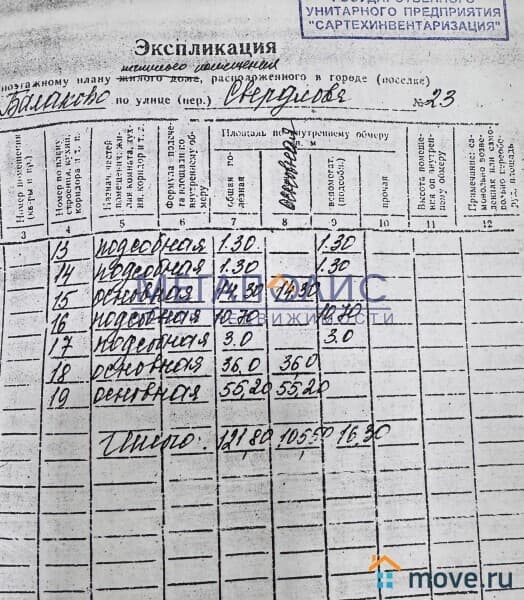 ГОСУДАРСТВЕННОГО
УНИТАРНОГО ПРЕДПРИЯТИЯ
"САРТЕХИНВЕНТАРИЗАЦИЯ"
Экспликация
нежилого помещения
поэтажному плану жилого дома, расположенного в городе (поселке)
Балаково по улице (пер.) Свердлова №23
Номер помещения (кв-ры и пр.)
Номер по плану строения, кухни, коридора и т. п.
Назнач. частей помещения: жилая комната, кухня, коридор и т. д.
Формула подсчета площадей по внутреннему обмеру
Площадь по внутреннему обмеру
кв. м
общая полезная
основная
вспомогат. (подсобн.)
прочая
Высота помещения по внутреннему обмеру
3 4 5 6 7 8 9 10 11 12
13 подсобная 1.30 1.30
14 подсобная 1.30 1.30
15 основная 14.30 14.30
МЕТАПОЛИС
16 подсобная 10.70 10.70
НЕДВИЖИМОСТИ
17 подсобная 3.0 3.0
18 основная 36.0 36.0
19 основная 55,20 55,20
Итого: 121,80 105,50 16,30
move.ru